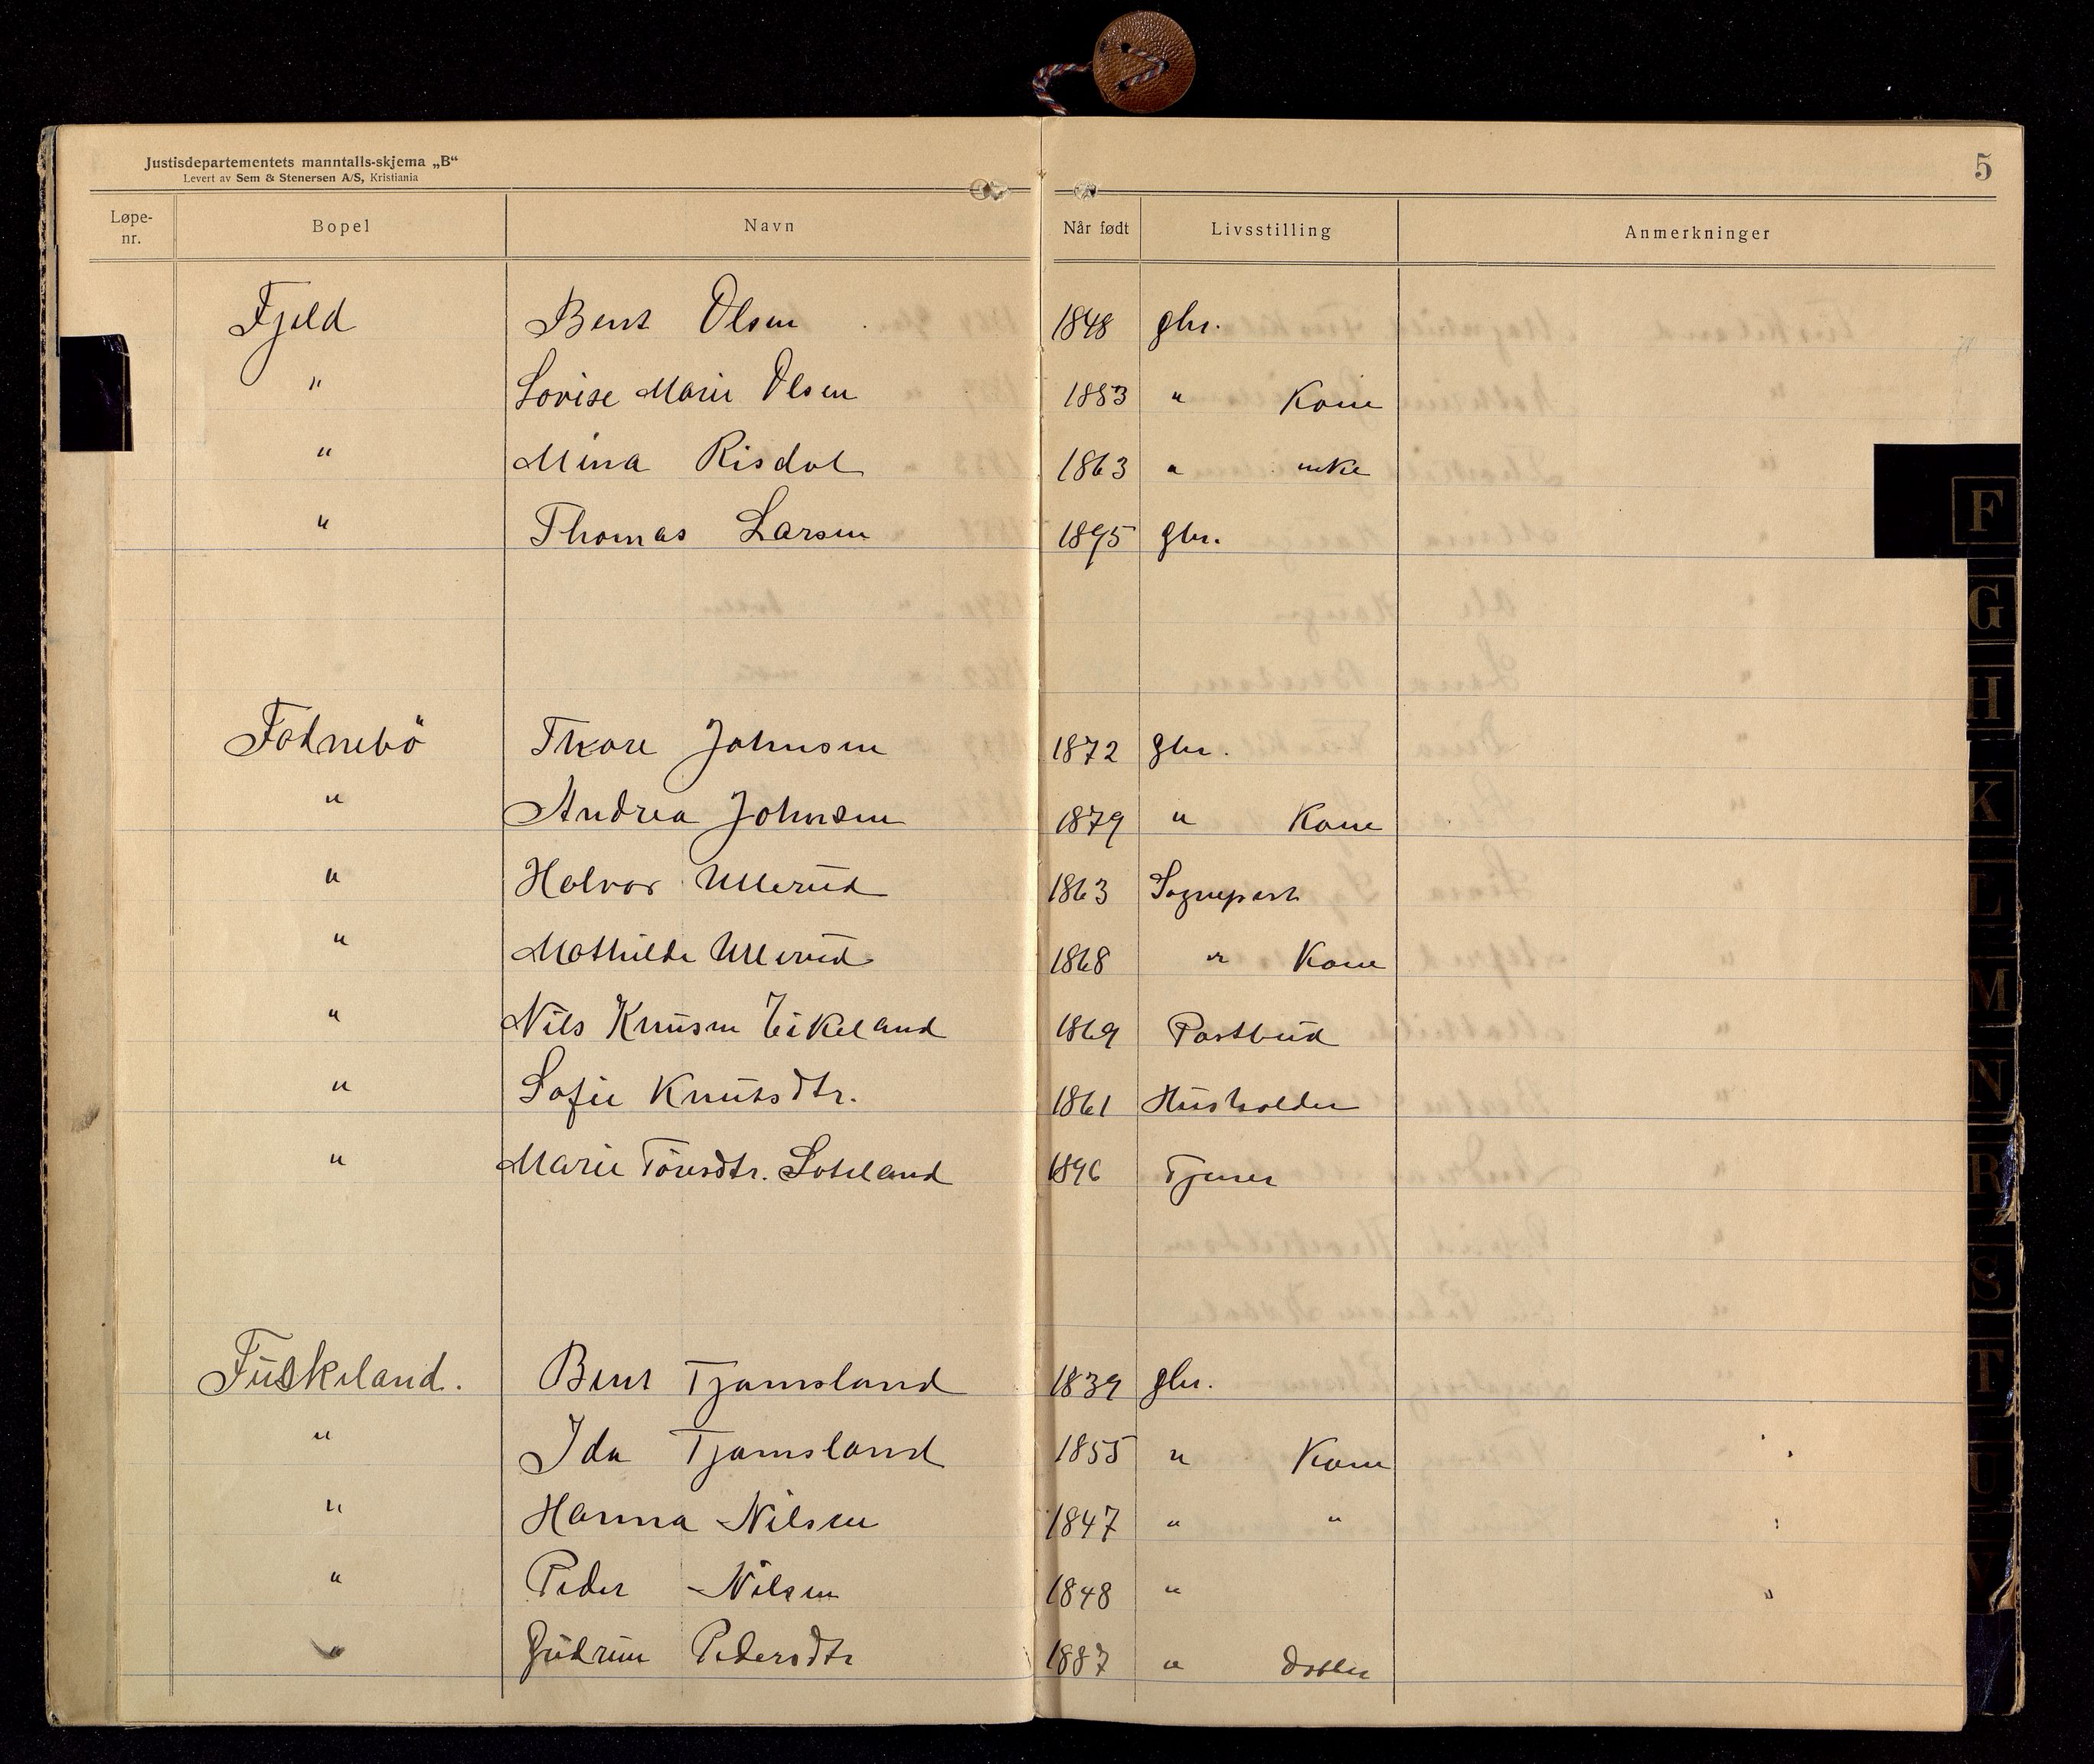 Justisdepartementets manntalls-skjema „B“
Levert av Sem & Stenersen A/S, Kristiania
5
Løpe-nr. Bopel Navn Når født Livsstilling Anmerkninger
Fjeld Bent Olsen 1848 gbr.
" Lovise Marie Olsen 1853 " Kone
" Mina Risdal 1863 " enke
" Thomas Larsen 1895 gbr.
Fodnebö Tkore Johnsen 1872 gbr.
" Andrea Johnsen 1879 " Kone
" Halvor Ullerud 1863 Sogneprest
" Mathilde Ullerud 1868 " Kone
" Nils Knusen Eikeland 1869 Postbud
" Sofie Knutsdtr. 1861 Husholder
" Marie Töresdtr. Loteland 1896 Tjener
Fuskeland. Bent Tjomsland 1839 gbr.
" Ida Tjomsland 1855 " Kone
" Hanna Nilsen 1847 " "
" Peder Nilsen 1848 "
" Gudrun Pedersdtr 1887 " datter
F
G
H
K
L
M
N
R
S
T
U
V